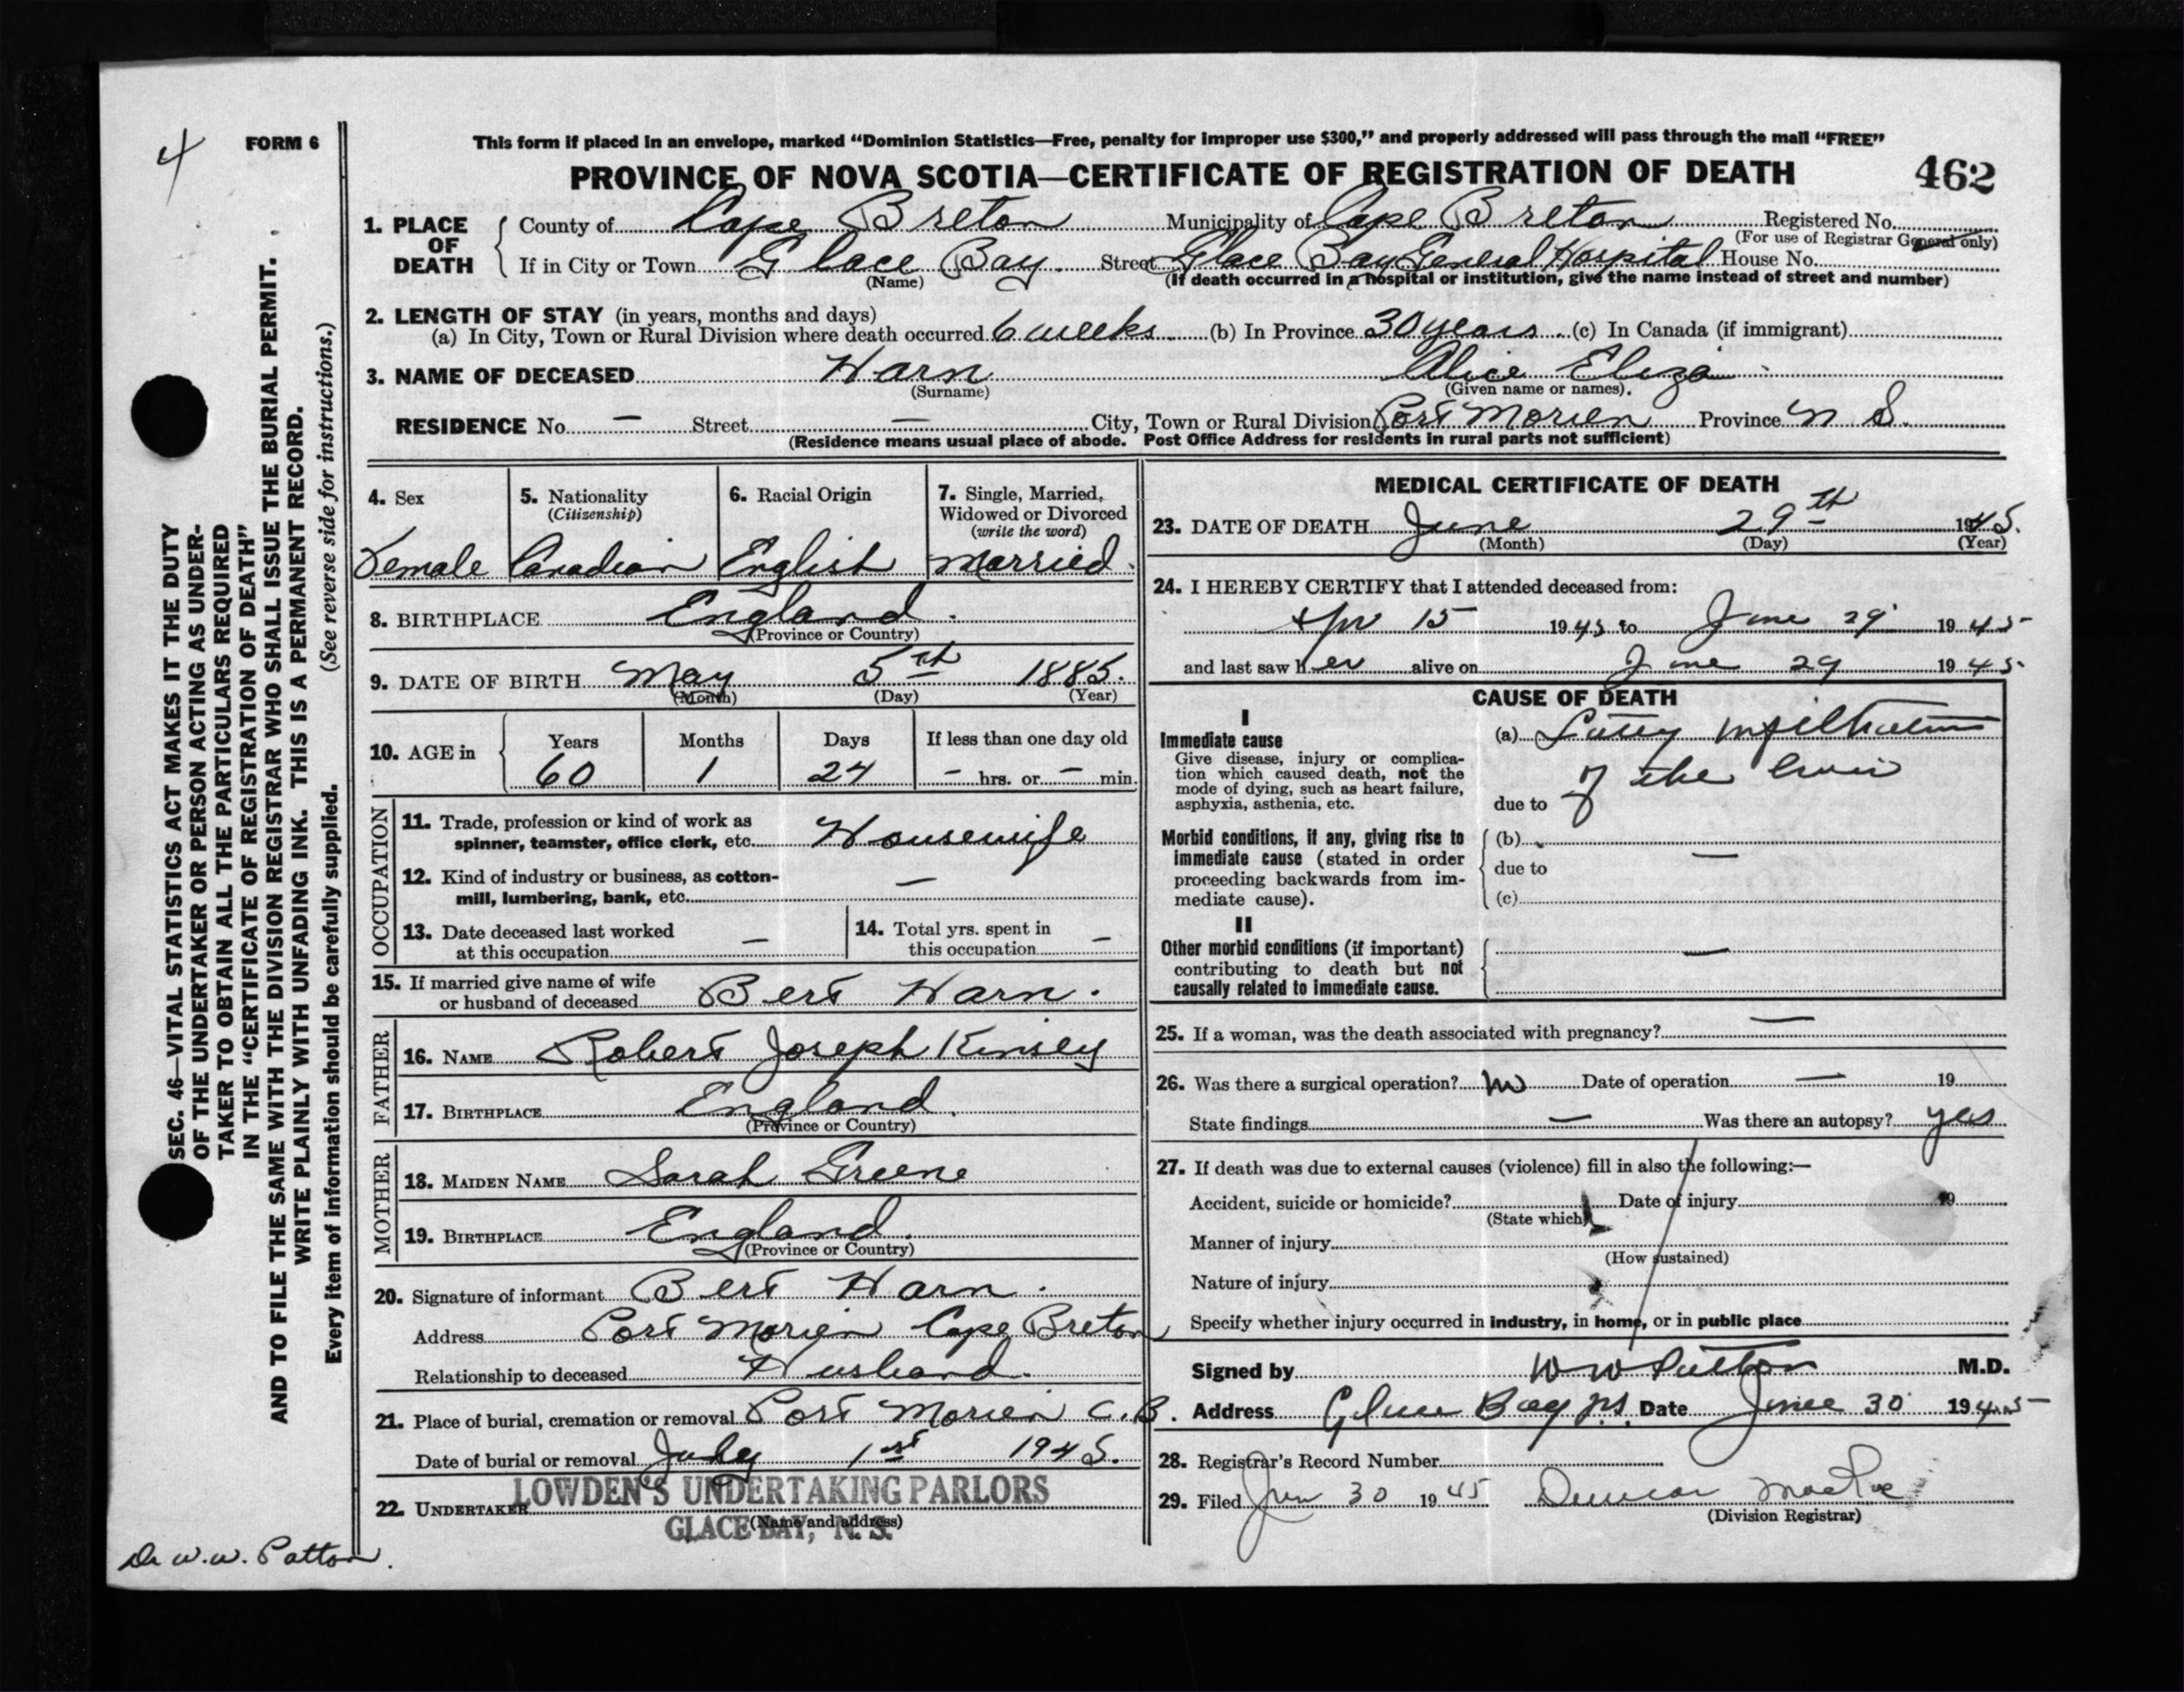 4
FORM 6
This form if placed in an envelope, marked “Dominion Statistics—Free, penalty for improper use $300,” and properly addressed will pass through the mail “FREE”
PROVINCE OF NOVA SCOTIA—CERTIFICATE OF REGISTRATION OF DEATH
462
1. PLACE OF DEATH
County of Cape Breton Municipality of Cape Breton Registered No.
(For use of Registrar General only)
If in City or Town Glace Bay. Street Glace Bay General Hospital House No.
(Name) (If death occurred in a hospital or institution, give the name instead of street and number)
2. LENGTH OF STAY (in years, months and days)
(a) In City, Town or Rural Division where death occurred 6 weeks (b) In Province 30 years (c) In Canada (if immigrant)
3. NAME OF DECEASED Harn Alice Eliza
(Surname) (Given name or names).
RESIDENCE No. — Street — City, Town or Rural Division Port Morien Province N S.
(Residence means usual place of abode. Post Office Address for residents in rural parts not sufficient)
4. Sex
Female
5. Nationality
(Citizenship)
Canadian
6. Racial Origin
English
7. Single, Married,
Widowed or Divorced
(write the word)
Married.
8. BIRTHPLACE England.
(Province or Country)
9. DATE OF BIRTH May 5th 1885.
(Month) (Day) (Year)
10. AGE in
Years Months Days If less than one day old
60 1 24 — hrs. or — min.
OCCUPATION
11. Trade, profession or kind of work as
spinner, teamster, office clerk, etc. Housewife
12. Kind of industry or business, as cotton-
mill, lumbering, bank, etc. —
13. Date deceased last worked
at this occupation —
14. Total yrs. spent in
this occupation —
15. If married give name of wife
or husband of deceased Bert Harn.
FATHER
16. NAME Robert Joseph Kinsey
17. BIRTHPLACE England.
(Province or Country)
MOTHER
18. MAIDEN NAME Sarah Greene
19. BIRTHPLACE England.
(Province or Country)
20. Signature of informant Bert Harn.
Address Port Morien Cape Breton
Relationship to deceased Husband.
21. Place of burial, cremation or removal Port Morien C.B.
Date of burial or removal July 1st 1945.
22. UNDERTAKER LOWDEN'S UNDERTAKING PARLORS
(Name and address)
GLACE BAY, N. S.
MEDICAL CERTIFICATE OF DEATH
23. DATE OF DEATH June 29th 1945.
(Month) (Day) (Year)
24. I HEREBY CERTIFY that I attended deceased from:
Apr 15 1945 to June 29 1945
and last saw her alive on June 29 1945
CAUSE OF DEATH
I
Immediate cause
Give disease, injury or complica-
tion which caused death, not the
mode of dying, such as heart failure,
asphyxia, asthenia, etc.
(a) Fatty infiltration
of the liver
due to
Morbid conditions, if any, giving rise to
immediate cause (stated in order
proceeding backwards from im-
mediate cause).
(b)
due to —
(c)
II
Other morbid conditions (if important)
contributing to death but not
causally related to immediate cause.
—
25. If a woman, was the death associated with pregnancy? —
26. Was there a surgical operation? no Date of operation — 19
State findings — Was there an autopsy? yes
27. If death was due to external causes (violence) fill in also the following:—
Accident, suicide or homicide? Date of injury 19
(State which)
Manner of injury
(How sustained)
Nature of injury
Specify whether injury occurred in industry, in home, or in public place
Signed by W W Patton M.D.
Address Glace Bay NS. Date June 30 1945
28. Registrar's Record Number
29. Filed Jun 30 1945 Duncan MacRae
(Division Registrar)
SEC. 46—VITAL STATISTICS ACT MAKES IT THE DUTY
OF THE UNDERTAKER OR PERSON ACTING AS UNDER-
TAKER TO OBTAIN ALL THE PARTICULARS REQUIRED
IN THE “CERTIFICATE OF REGISTRATION OF DEATH”
AND TO FILE THE SAME WITH THE DIVISION REGISTRAR WHO SHALL ISSUE THE BURIAL PERMIT.
WRITE PLAINLY WITH UNFADING INK. THIS IS A PERMANENT RECORD.
Every item of information should be carefully supplied. (See reverse side for instructions.)
Dr W.W. Patton.